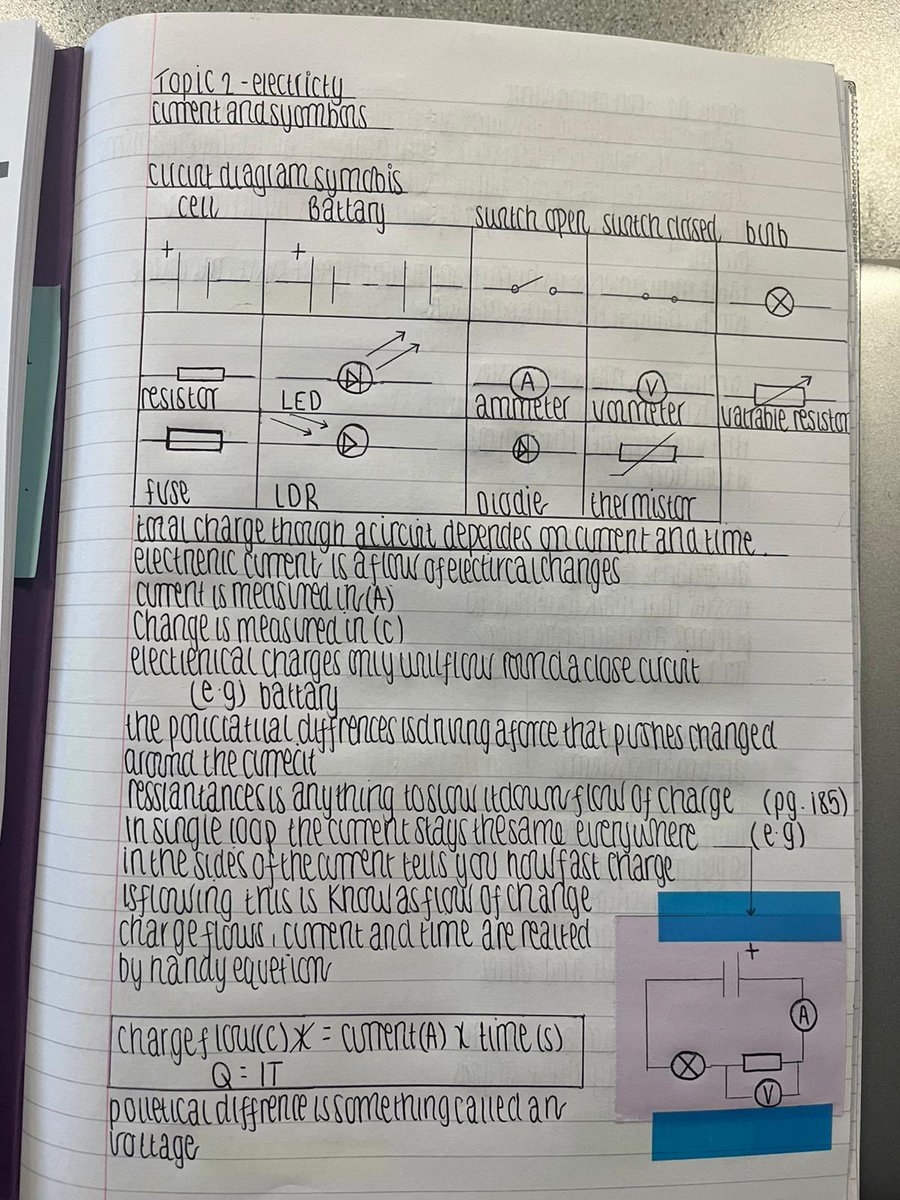 Topic 2 - electricty
current and syombns
circuit diagram symobis
cell Battary switch open switch closed bulb
+ +
A V
resistor LED ammeter voltmeter vairable resistor
fuse LDR Diodie thermistor
total charge though a circuit dependes on current and time
electrenic current is a flow of electircal changes
current is measured in (A)
Change is measured in (C)
electienical charges only will flow round a close circuit
(e.g) battary
the differences is driving a force that pushes changed
around the
is anything to slow it down flow of charge (pg. 185)
in single loop the current stays the same everywhere (e.g)
in the sides of the current tells you how fast charge
is flowing this is know as flow of change
charge flows, current and time are realted
by handy equetion
+
A
V
charge flow (C) = current (A) x time (s)
Q = IT
diffrence is something called an
voltage